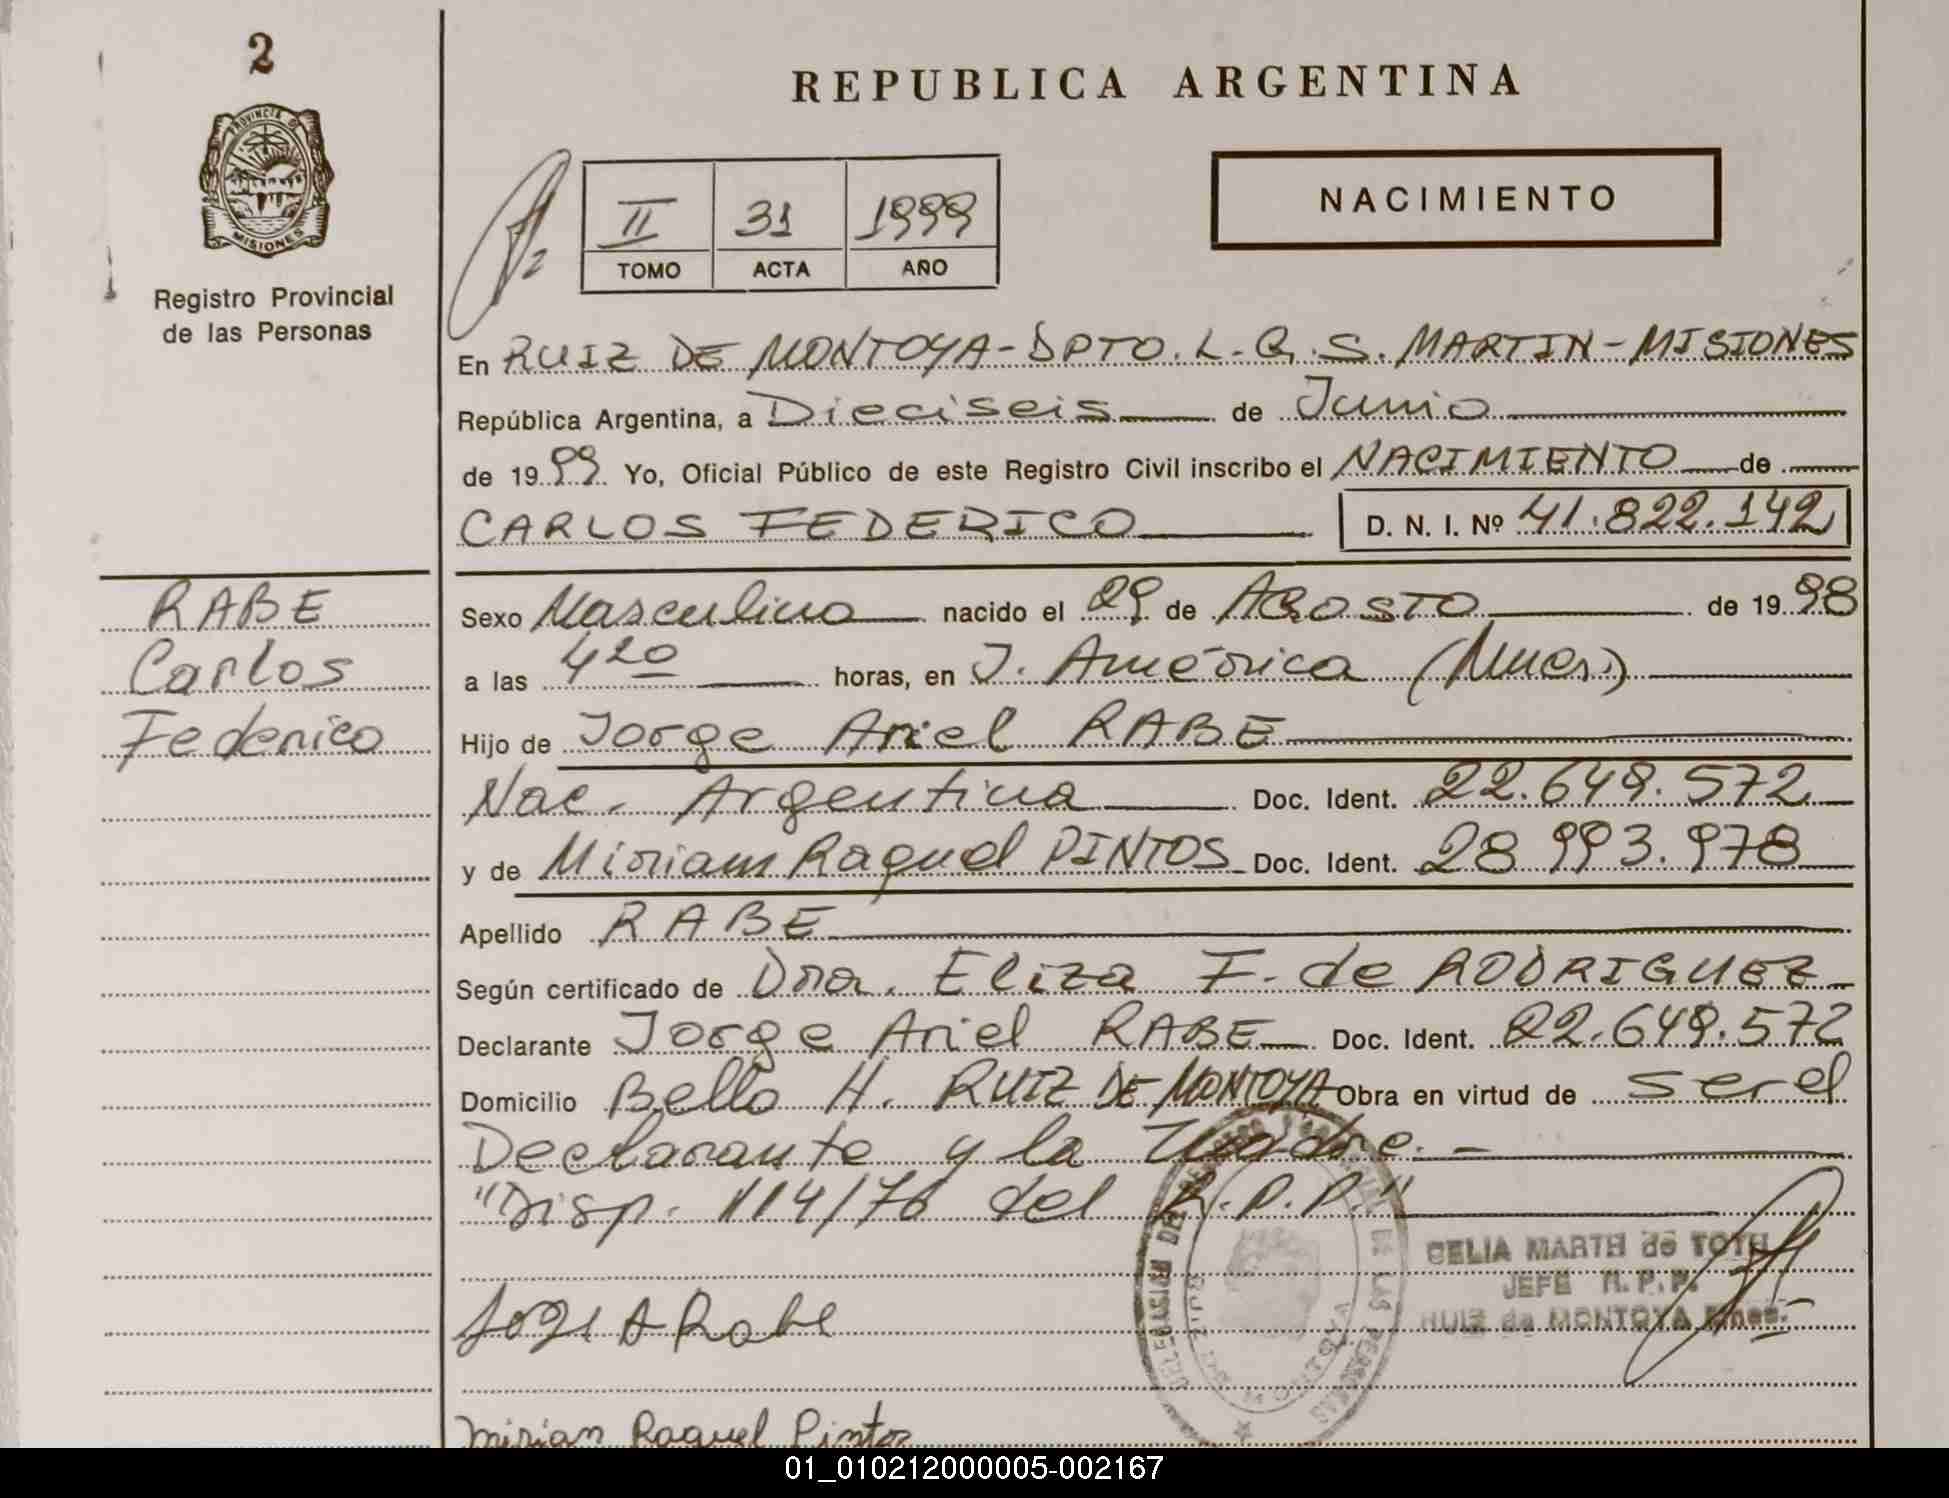 2
PROVINCIA DE
MISIONES
Registro Provincial
de las Personas
REPUBLICA ARGENTINA
NACIMIENTO
II 31 1999
TOMO ACTA AÑO
En RUIZ DE MONTOYA-DPTO. L.G.S. MARTIN-MISIONES
República Argentina, a Dieciseis de Junio
de 1999 Yo, Oficial Público de este Registro Civil inscribo el NACIMIENTO de
CARLOS FEDERICO D. N. I. Nº 41.822.142
RABE
Carlos
Federico
Sexo Masculino nacido el 29 de AGOSTO de 1998
a las 4 20 horas, en J. América (Mnes.)
Hijo de Jorge Ariel RABE
Nac. Argentina Doc. Ident. 22.649.572
y de Miriam Raquel PINTOS Doc. Ident. 28 993.978
Apellido RABE
Según certificado de Dra. Eliza F. de RODRIGUEZ
Declarante Jorge Ariel RABE Doc. Ident. 22.649.572
Domicilio Bello H. RUIZ DE MONTOYA Obra en virtud de ser el
Declarante y la Madre.-
"Disp. 114/76 del R.P.P."
DELEGACION DEL REGISTRO PROVINCIAL DE LAS PERSONAS
RUIZ DE MONTOYA
CELIA MARTH de TOTH
JEFE R.P.P.
RUIZ de MONTOYA Mnes.
Jorge A Rabe
Mirian Raquel Pintos
01_010212000005-002167